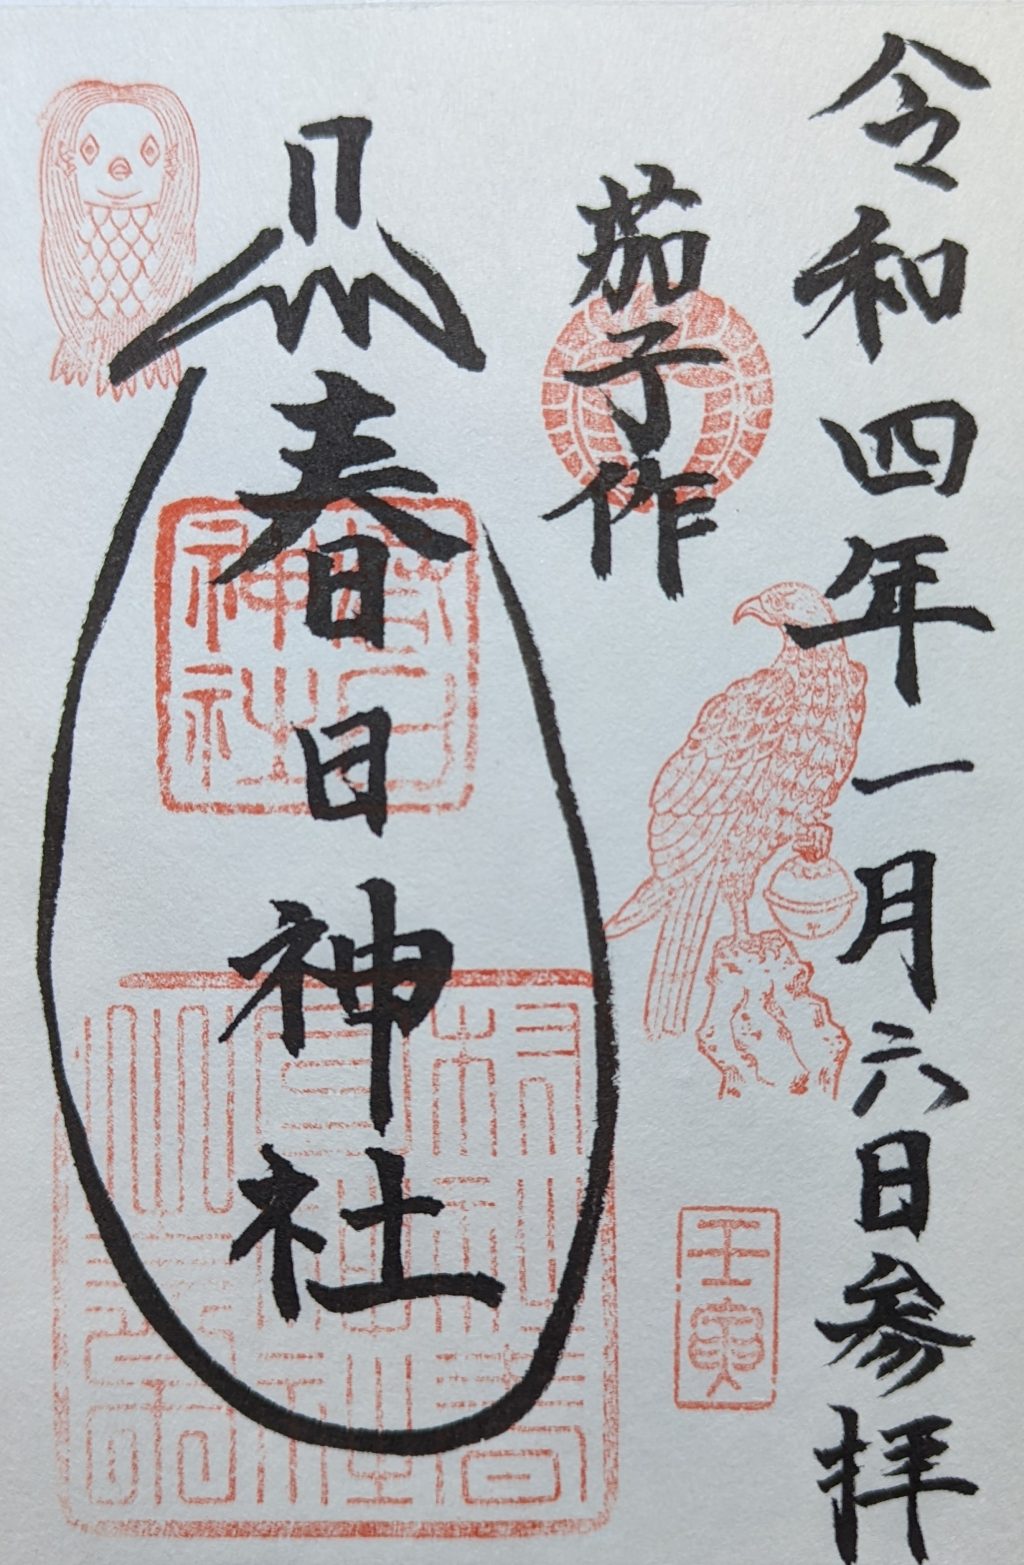 令和四年一月六日参拝
茄子作
春日神社
春日神社
壬寅